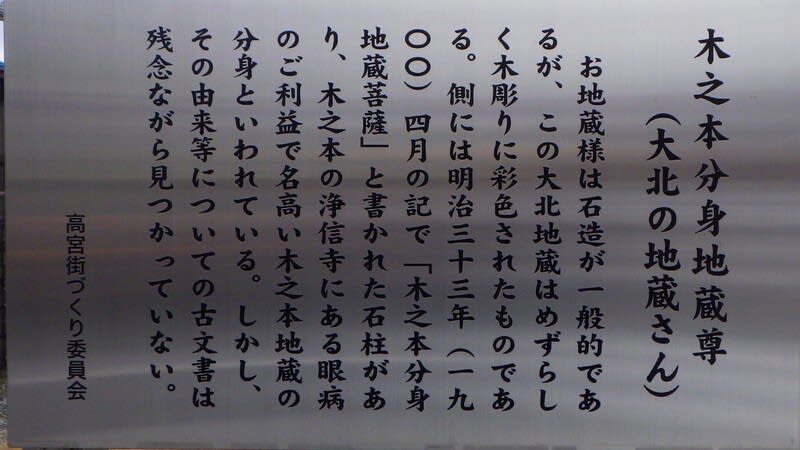 木之本分身地蔵尊
（大北の地蔵さん）
お地蔵様は石造が一般的であ
るが、この大北地蔵はめずらし
く木彫りに彩色されたものであ
る。側には明治三十三年（一九
〇〇）四月の記で「木之本分身
地蔵菩薩」と書かれた石柱があ
り、木之本の浄信寺にある眼病
のご利益で名高い木之本地蔵の
分身といわれている。しかし、
その由来等についての古文書は
残念ながら見つかっていない。
高宮街づくり委員会